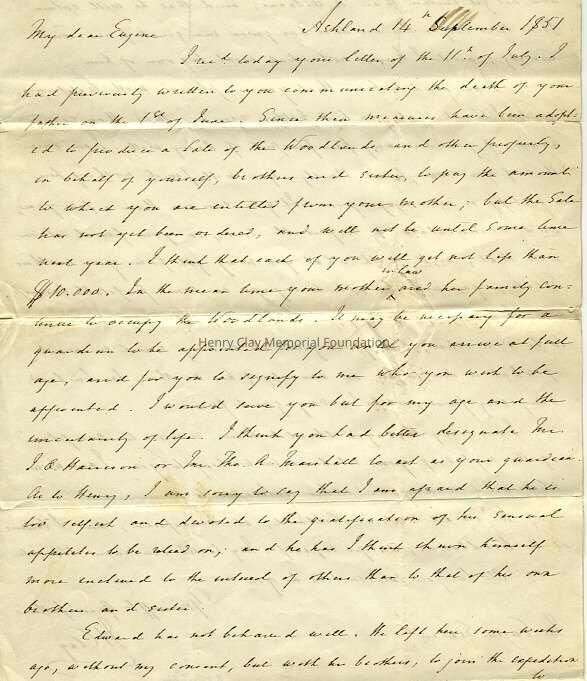 Ashland 14th September 1851
My dear Eugene
I recd. today your letter of the 11th. of July. I
had previously written to you communicating the death of your
father on the 1st of June. Since then measures have been adopt-
ed to produce a Sale of the Woodlands and other property,
in behalf of yourself, brothers and sister, to pay the amount
to which you are entitled from your mother; but the Sale
has not yet been ordered, and will not be until some time
next year. I think that each of you will get not less than
$10.000. In the mean time your mother in law and her family con-
tinue to occupy the Woodlands. It may be necessary for a
guardian to be appointed for you until you arrive at full
Henry Clay Memorial Foundation
age, and for you to signify to me who you wish to be
appointed. I would serve you but for my age and the
uncertainty of life. I think you had better designate Mr.
J. O. Harrison or Mr. Tho. A. Marshall to act as your guardian.
As to Henry, I am sorry to say that I am afraid that he is
too selfish and devoted to the gratification of his sensual
appetites to be relied on; and he has I think shewn himself
more inclined to the interest of others than to that of his own
brothers and sister.
Edward has not behaved well. He left here some weeks
ago, without my consent, but with his brothers, to join the expedition
to